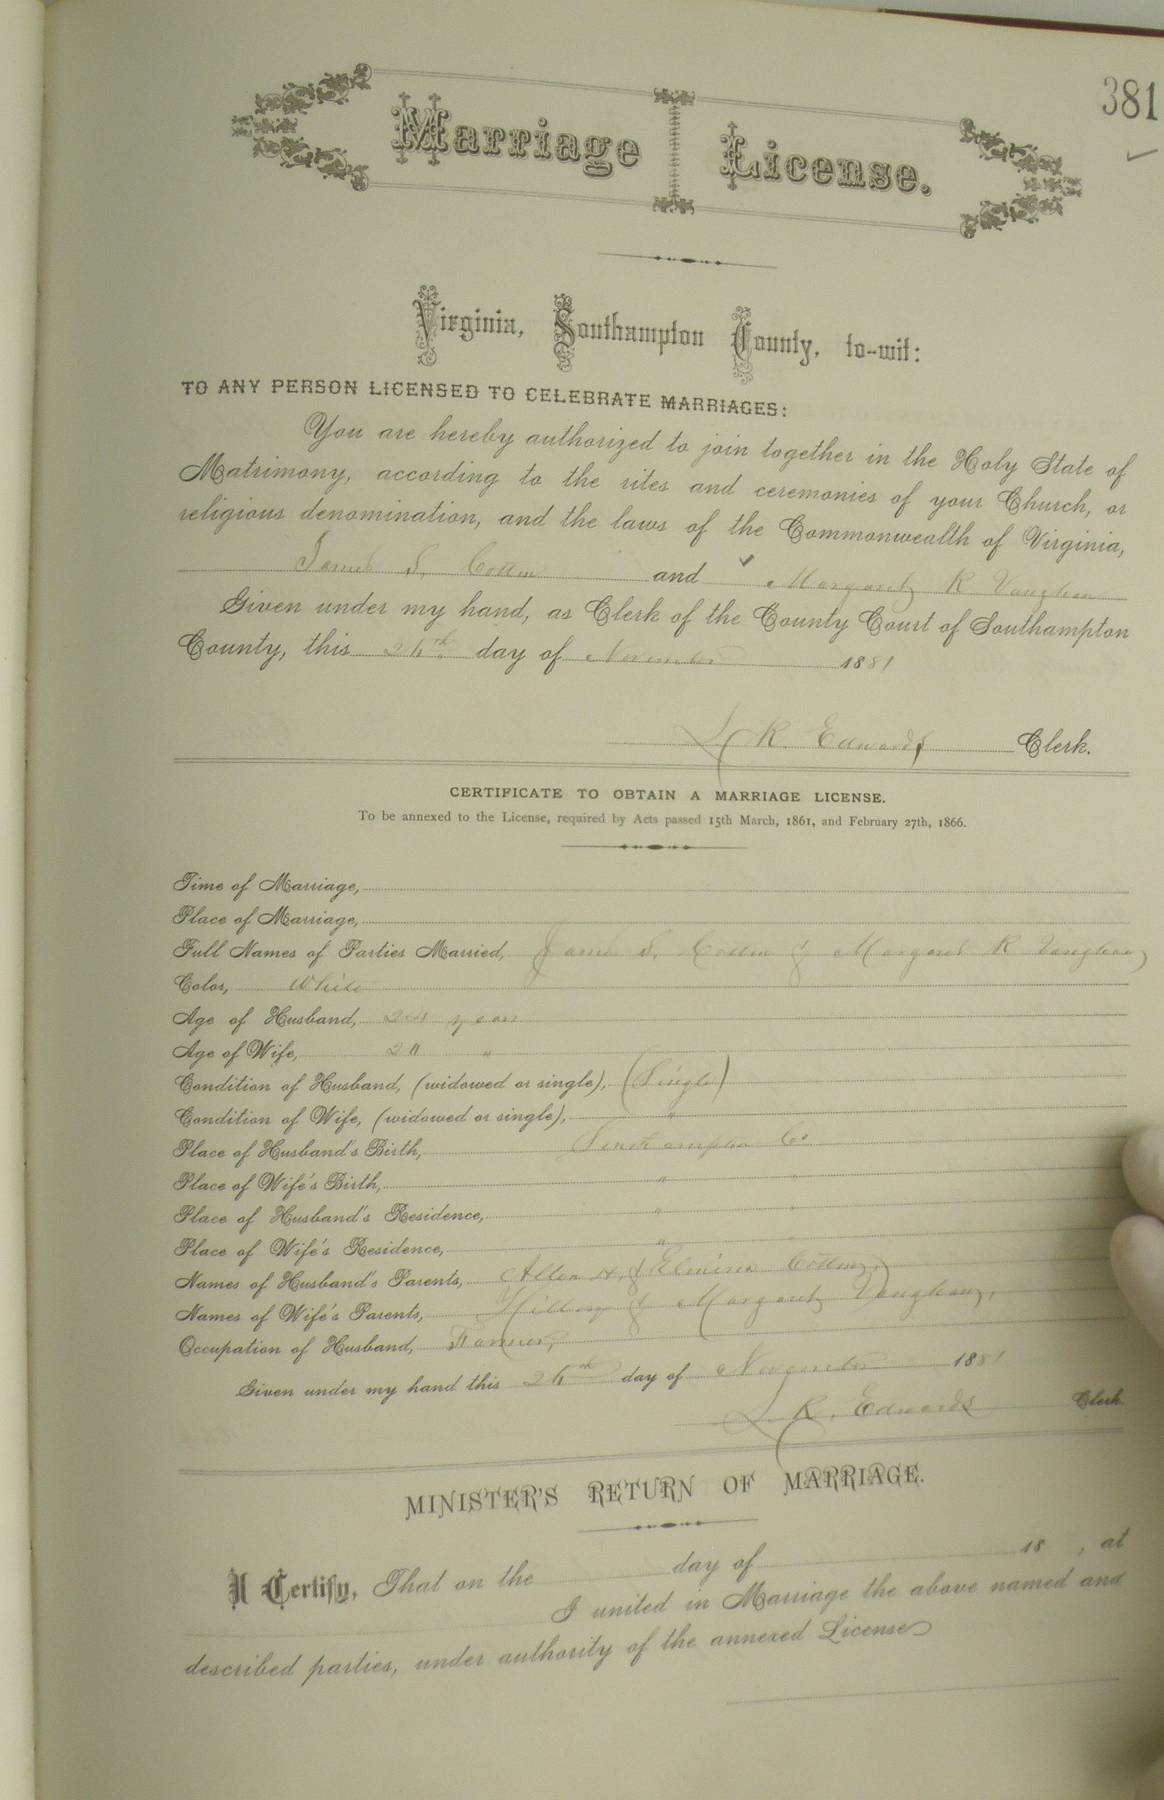 381
Marriage License.
Virginia, Southampton County, to-wit:
TO ANY PERSON LICENSED TO CELEBRATE MARRIAGES:
You are hereby authorized to join together in the Holy State of
Matrimony, according to the rites and ceremonies of your Church, or
religious denomination, and the laws of the Commonwealth of Virginia,
James S. and Margaret R Vaughan
Given under my hand, as Clerk of the County Court of Southampton
County, this day of November 1881
L. R. Edwards Clerk.
CERTIFICATE TO OBTAIN A MARRIAGE LICENSE.
To be annexed to the License, required by Acts passed 15th March, 1861, and February 27th, 1866.
Time of Marriage,
Place of Marriage,
Full Names of Parties Married, James S. & Margaret R Vaughan
Color, White
Age of Husband, 24 years
Age of Wife, "
Condition of Husband, (widowed or single), (Single)
Condition of Wife, (widowed or single), "
Place of Husband's Birth, Southampton Co
Place of Wife's Birth, " "
Place of Husband's Residence, " "
Place of Wife's Residence, "
Names of Husband's Parents, Allen &
Names of Wife's Parents, & Margaret Vaughan,
Occupation of Husband, Farmer,
Given under my hand this day of November 1881
L. R. Edwards Clerk
MINISTER'S RETURN OF MARRIAGE.
I Certify, That on the day of 18 , at
I united in Marriage the above named and
described parties, under authority of the annexed License